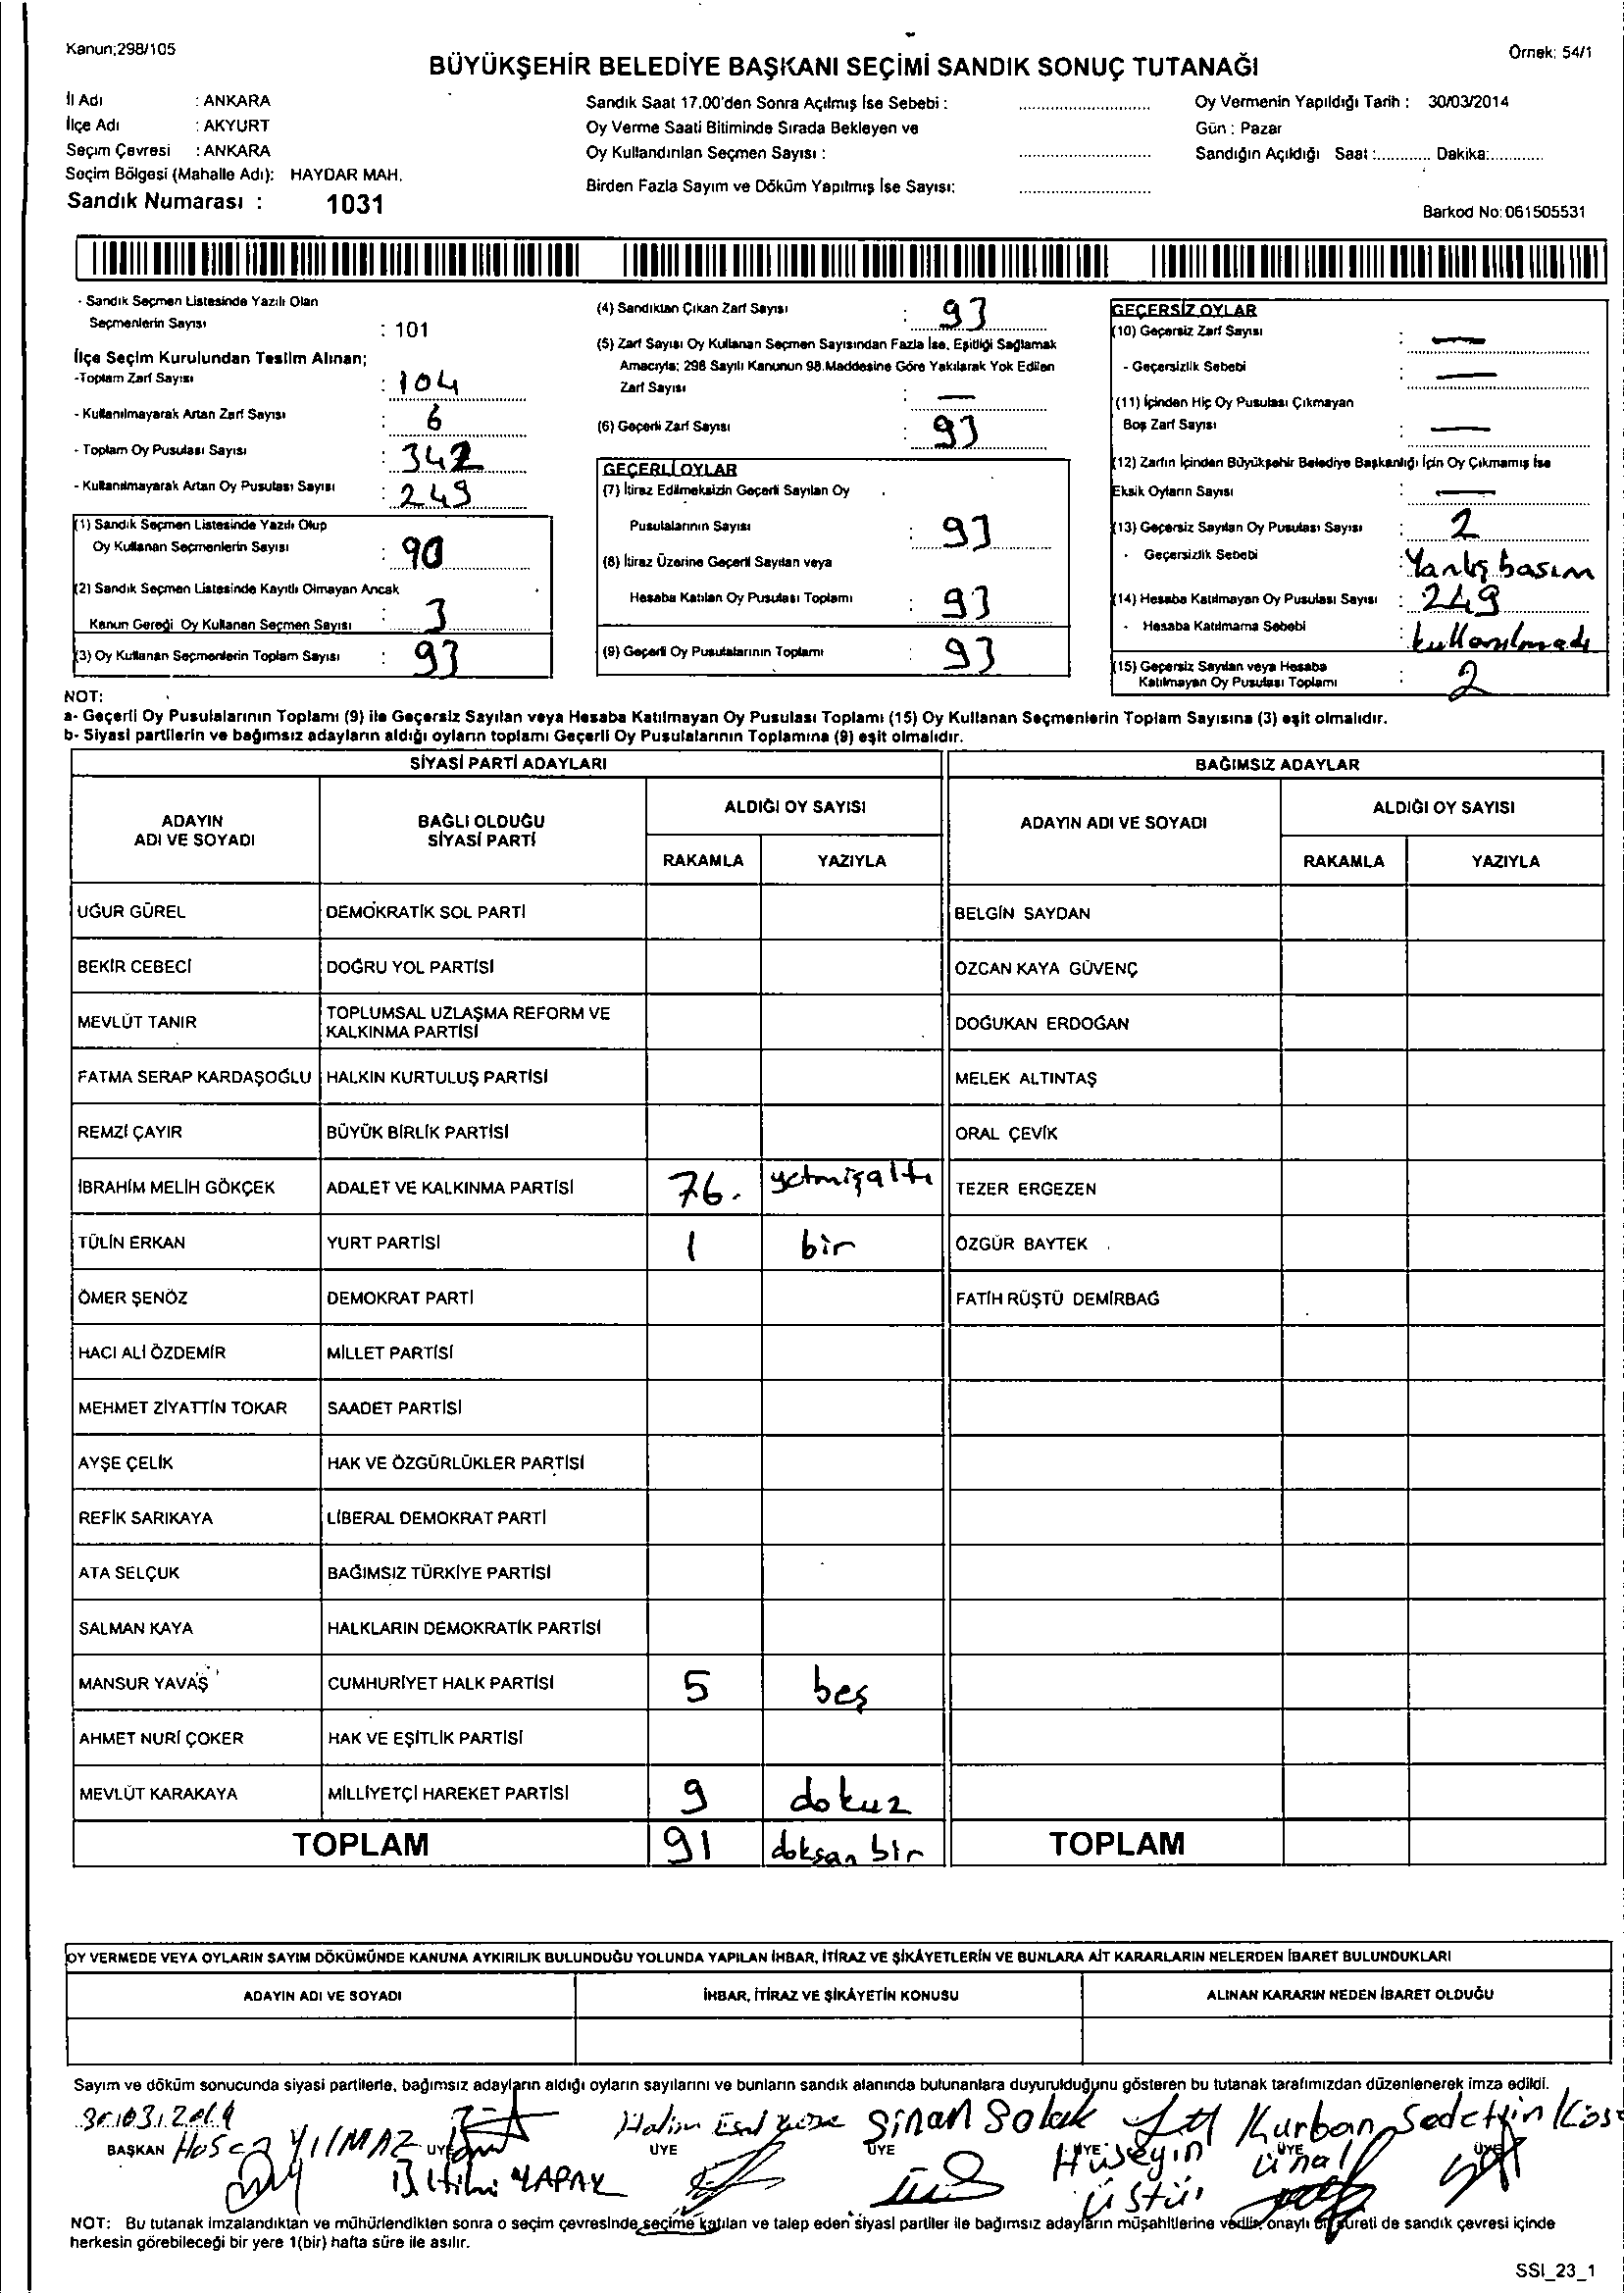 Kanun;298/105
Örnek: 54/1
BÜYÜKŞEHİR BELEDİYE BAŞKANI SEÇİMİ SANDIK SONUÇ TUTANAĞI
İl Adı : ANKARA
İlçe Adı : AKYURT
Seçim Çevresi : ANKARA
Seçim Bölgesi (Mahalle Adı): HAYDAR MAH.
Sandık Numarası : 1031
Sandık Saat 17.00'den Sonra Açılmış İse Sebebi :
Oy Verme Saati Bitiminde Sırada Bekleyen ve
Oy Kullandırılan Seçmen Sayısı :
Birden Fazla Sayım ve Döküm Yapılmış İse Sayısı:
Oy Vermenin Yapıldığı Tarih : 30/03/2014
Gün : Pazar
Sandığın Açıldığı Saat :............ Dakika:............
Barkod No:061505531
- Sandık Seçmen Listesinde Yazılı Olan
Seçmenlerin Sayısı : 101
İlçe Seçim Kurulundan Teslim Alınan;
-Toplam Zarf Sayısı : 104
- Kullanılmayarak Artan Zarf Sayısı : 6
- Toplam Oy Pusulası Sayısı : 342
- Kullanılmayarak Artan Oy Pusulası Sayısı : 249
(1) Sandık Seçmen Listesinde Yazılı Olup
Oy Kullanan Seçmenlerin Sayısı : 90
(2) Sandık Seçmen Listesinde Kayıtlı Olmayan Ancak
Kanun Gereği Oy Kullanan Seçmen Sayısı : 3
(3) Oy Kullanan Seçmenlerin Toplam Sayısı : 93
(4) Sandıktan Çıkan Zarf Sayısı : 93
(5) Zarf Sayısı Oy Kullanan Seçmen Sayısından Fazla İse, Eşitliği Sağlamak
Amacıyla; 298 Sayılı Kanunun 98.Maddesine Göre Yakılarak Yok Edilen
Zarf Sayısı : —
(6) Geçerli Zarf Sayısı : 93
GEÇERLİ OYLAR
(7) İtiraz Edilmeksizin Geçerli Sayılan Oy
Pusulalarının Sayısı : 93
(8) İtiraz Üzerine Geçerli Sayılan veya
Hesaba Katılan Oy Pusulası Toplamı : 93
(9) Geçerli Oy Pusulalarının Toplamı : 93
GEÇERSİZ OYLAR
(10) Geçersiz Zarf Sayısı : —
- Geçersizlik Sebebi : —
(11) İçinden Hiç Oy Pusulası Çıkmayan
Boş Zarf Sayısı : —
(12) Zarfın İçinden Büyükşehir Belediye Başkanlığı İçin Oy Çıkmamış İse
Eksik Oyların Sayısı : —
(13) Geçersiz Sayılan Oy Pusulası Sayısı : 2
- Geçersizlik Sebebi : Yanlış basım
(14) Hesaba Katılmayan Oy Pusulası Sayısı : 249
- Hesaba Katılmama Sebebi : kullanılmadı
(15) Geçersiz Sayılan veya Hesaba
Katılmayan Oy Pusulası Toplamı : 2
NOT:
a- Geçerli Oy Pusulalarının Toplamı (9) ile Geçersiz Sayılan veya Hesaba Katılmayan Oy Pusulası Toplamı (15) Oy Kullanan Seçmenlerin Toplam Sayısına (3) eşit olmalıdır.
b- Siyasi partilerin ve bağımsız adayların aldığı oyların toplamı Geçerli Oy Pusulalarının Toplamına (9) eşit olmalıdır.
SİYASİ PARTİ ADAYLARI
BAĞIMSIZ ADAYLAR
ADAYIN
ADI VE SOYADI
BAĞLI OLDUĞU
SİYASİ PARTİ
ALDIĞI OY SAYISI
RAKAMLA YAZIYLA
ADAYIN ADI VE SOYADI
ALDIĞI OY SAYISI
RAKAMLA YAZIYLA
UĞUR GÜREL DEMOKRATİK SOL PARTİ BELGİN SAYDAN
BEKİR CEBECİ DOĞRU YOL PARTİSİ OZCAN KAYA GÜVENÇ
MEVLÜT TANIR TOPLUMSAL UZLAŞMA REFORM VE
KALKINMA PARTİSİ DOĞUKAN ERDOĞAN
FATMA SERAP KARDAŞOĞLU HALKIN KURTULUŞ PARTİSİ MELEK ALTINTAŞ
REMZİ ÇAYIR BÜYÜK BİRLİK PARTİSİ ORAL ÇEVİK
İBRAHİM MELİH GÖKÇEK ADALET VE KALKINMA PARTİSİ 76. yetmişaltı TEZER ERGEZEN
TÜLİN ERKAN YURT PARTİSİ 1 bir ÖZGÜR BAYTEK
ÖMER ŞENÖZ DEMOKRAT PARTİ FATİH RÜŞTÜ DEMİRBAĞ
HACI ALİ ÖZDEMİR MİLLET PARTİSİ
MEHMET ZİYATTİN TOKAR SAADET PARTİSİ
AYŞE ÇELİK HAK VE ÖZGÜRLÜKLER PARTİSİ
REFİK SARIKAYA LİBERAL DEMOKRAT PARTİ
ATA SELÇUK BAĞIMSIZ TÜRKİYE PARTİSİ
SALMAN KAYA HALKLARIN DEMOKRATİK PARTİSİ
MANSUR YAVAŞ CUMHURİYET HALK PARTİSİ 5 beş
AHMET NURİ ÇOKER HAK VE EŞİTLİK PARTİSİ
MEVLÜT KARAKAYA MİLLİYETÇİ HAREKET PARTİSİ 9 dokuz
TOPLAM 91 doksan bir TOPLAM
OY VERMEDE VEYA OYLARIN SAYIM DÖKÜMÜNDE KANUNA AYKIRILIK BULUNDUĞU YOLUNDA YAPILAN İHBAR, İTİRAZ VE ŞİKÂYETLERİN VE BUNLARA AİT KARARLARIN NELERDEN İBARET BULUNDUKLARI
ADAYIN ADI VE SOYADI İHBAR, İTİRAZ VE ŞİKÂYETİN KONUSU ALINAN KARARIN NEDEN İBARET OLDUĞU
Sayım ve döküm sonucunda siyasi partilerle, bağımsız adayların aldığı oyların sayılarını ve bunların sandık alanında bulunanlara duyurulduğunu gösteren bu tutanak tarafımızdan düzenlenerek imza edildi.
Halim Sinan Solak Kurban Sedettin
BAŞKAN YILMAZ ÜYE ÜYE ÜYE ÜYE ÜYE ÜYE
YAPAK Hüseyin Ünal
Üstür
NOT: Bu tutanak imzalandıktan ve mühürlendikten sonra o seçim çevresinde seçime katılan ve talep eden siyasi partiler ile bağımsız adayların müşahitlerine verilir, onaylı bir sureti de sandık çevresi içinde
herkesin görebileceği bir yere 1(bir) hafta süre ile asılır.
SSI_23_1